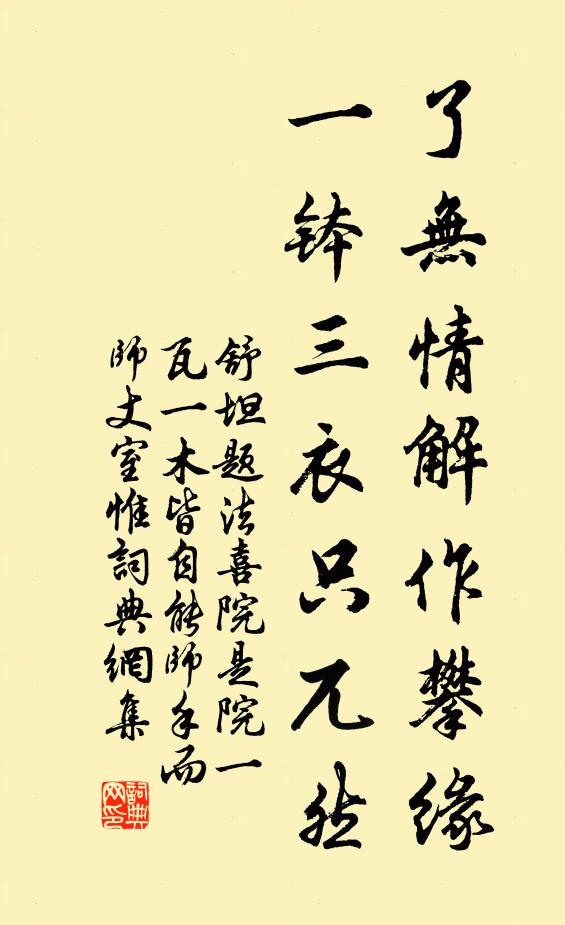 了無情解作攀緣
一鉢三衣只兀然
舒坦題法喜院是院一
瓦一木皆自能師手而
師丈室惟詞典網集
詞典
网印